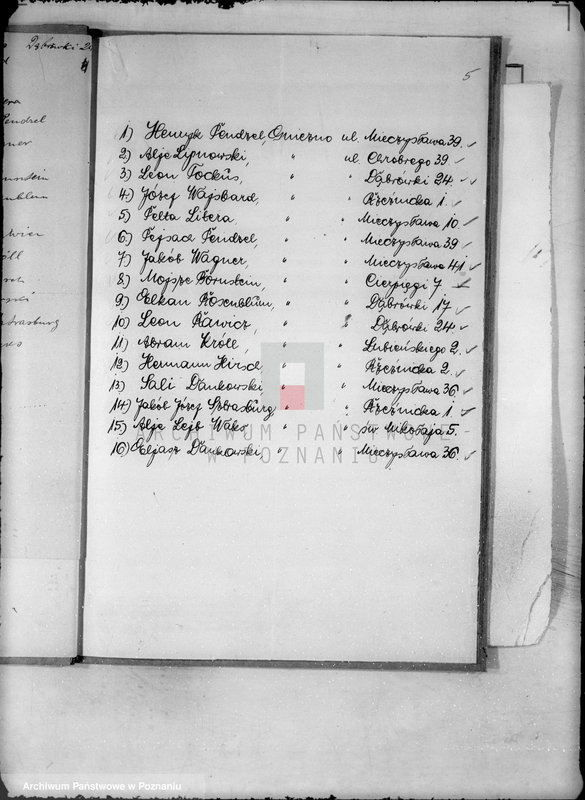 Dąbrówki 2
5
1) Henryk Fendzel, Gniezno ul. Mieczysława 39.
2) Alje Lipnowski, " ul. Chrobrego 39
3) Leon Tockus, " " Dąbrówki 24.
4) Józef Wajsbard, " " Rzeźnicka 1.
5) Felta Libera, " " Mieczysława 10.
6) Fejsach Fendzel, " " Mieczysława 39
7) Jakób Wagner, " " Mieczysława 41.
8) Mojsze Bornstein, " " Cierpięgi 7
9) Elkan Rosenblum, " " Dąbrówki 17
10) Leon Rawicz, " " Dąbrówki 24
11) Abram Król, " " Lubieńskiego 2.
12) Hermann Hirsch, " " Rzeźnicka 2.
13) Sali Dankowski " " Mieczysława 36.
14) Jakób Józef Szbrasburg " " Rzeźnicka 1.
15) Alje Lejb Waks " " św Mikołaja 5.
16) Eljasz Dankowski, " " Mieczysława 36.
ARCHIWUM PAŃSTWOWE
W POZNANIU
Archiwum Państwowe w Poznaniu